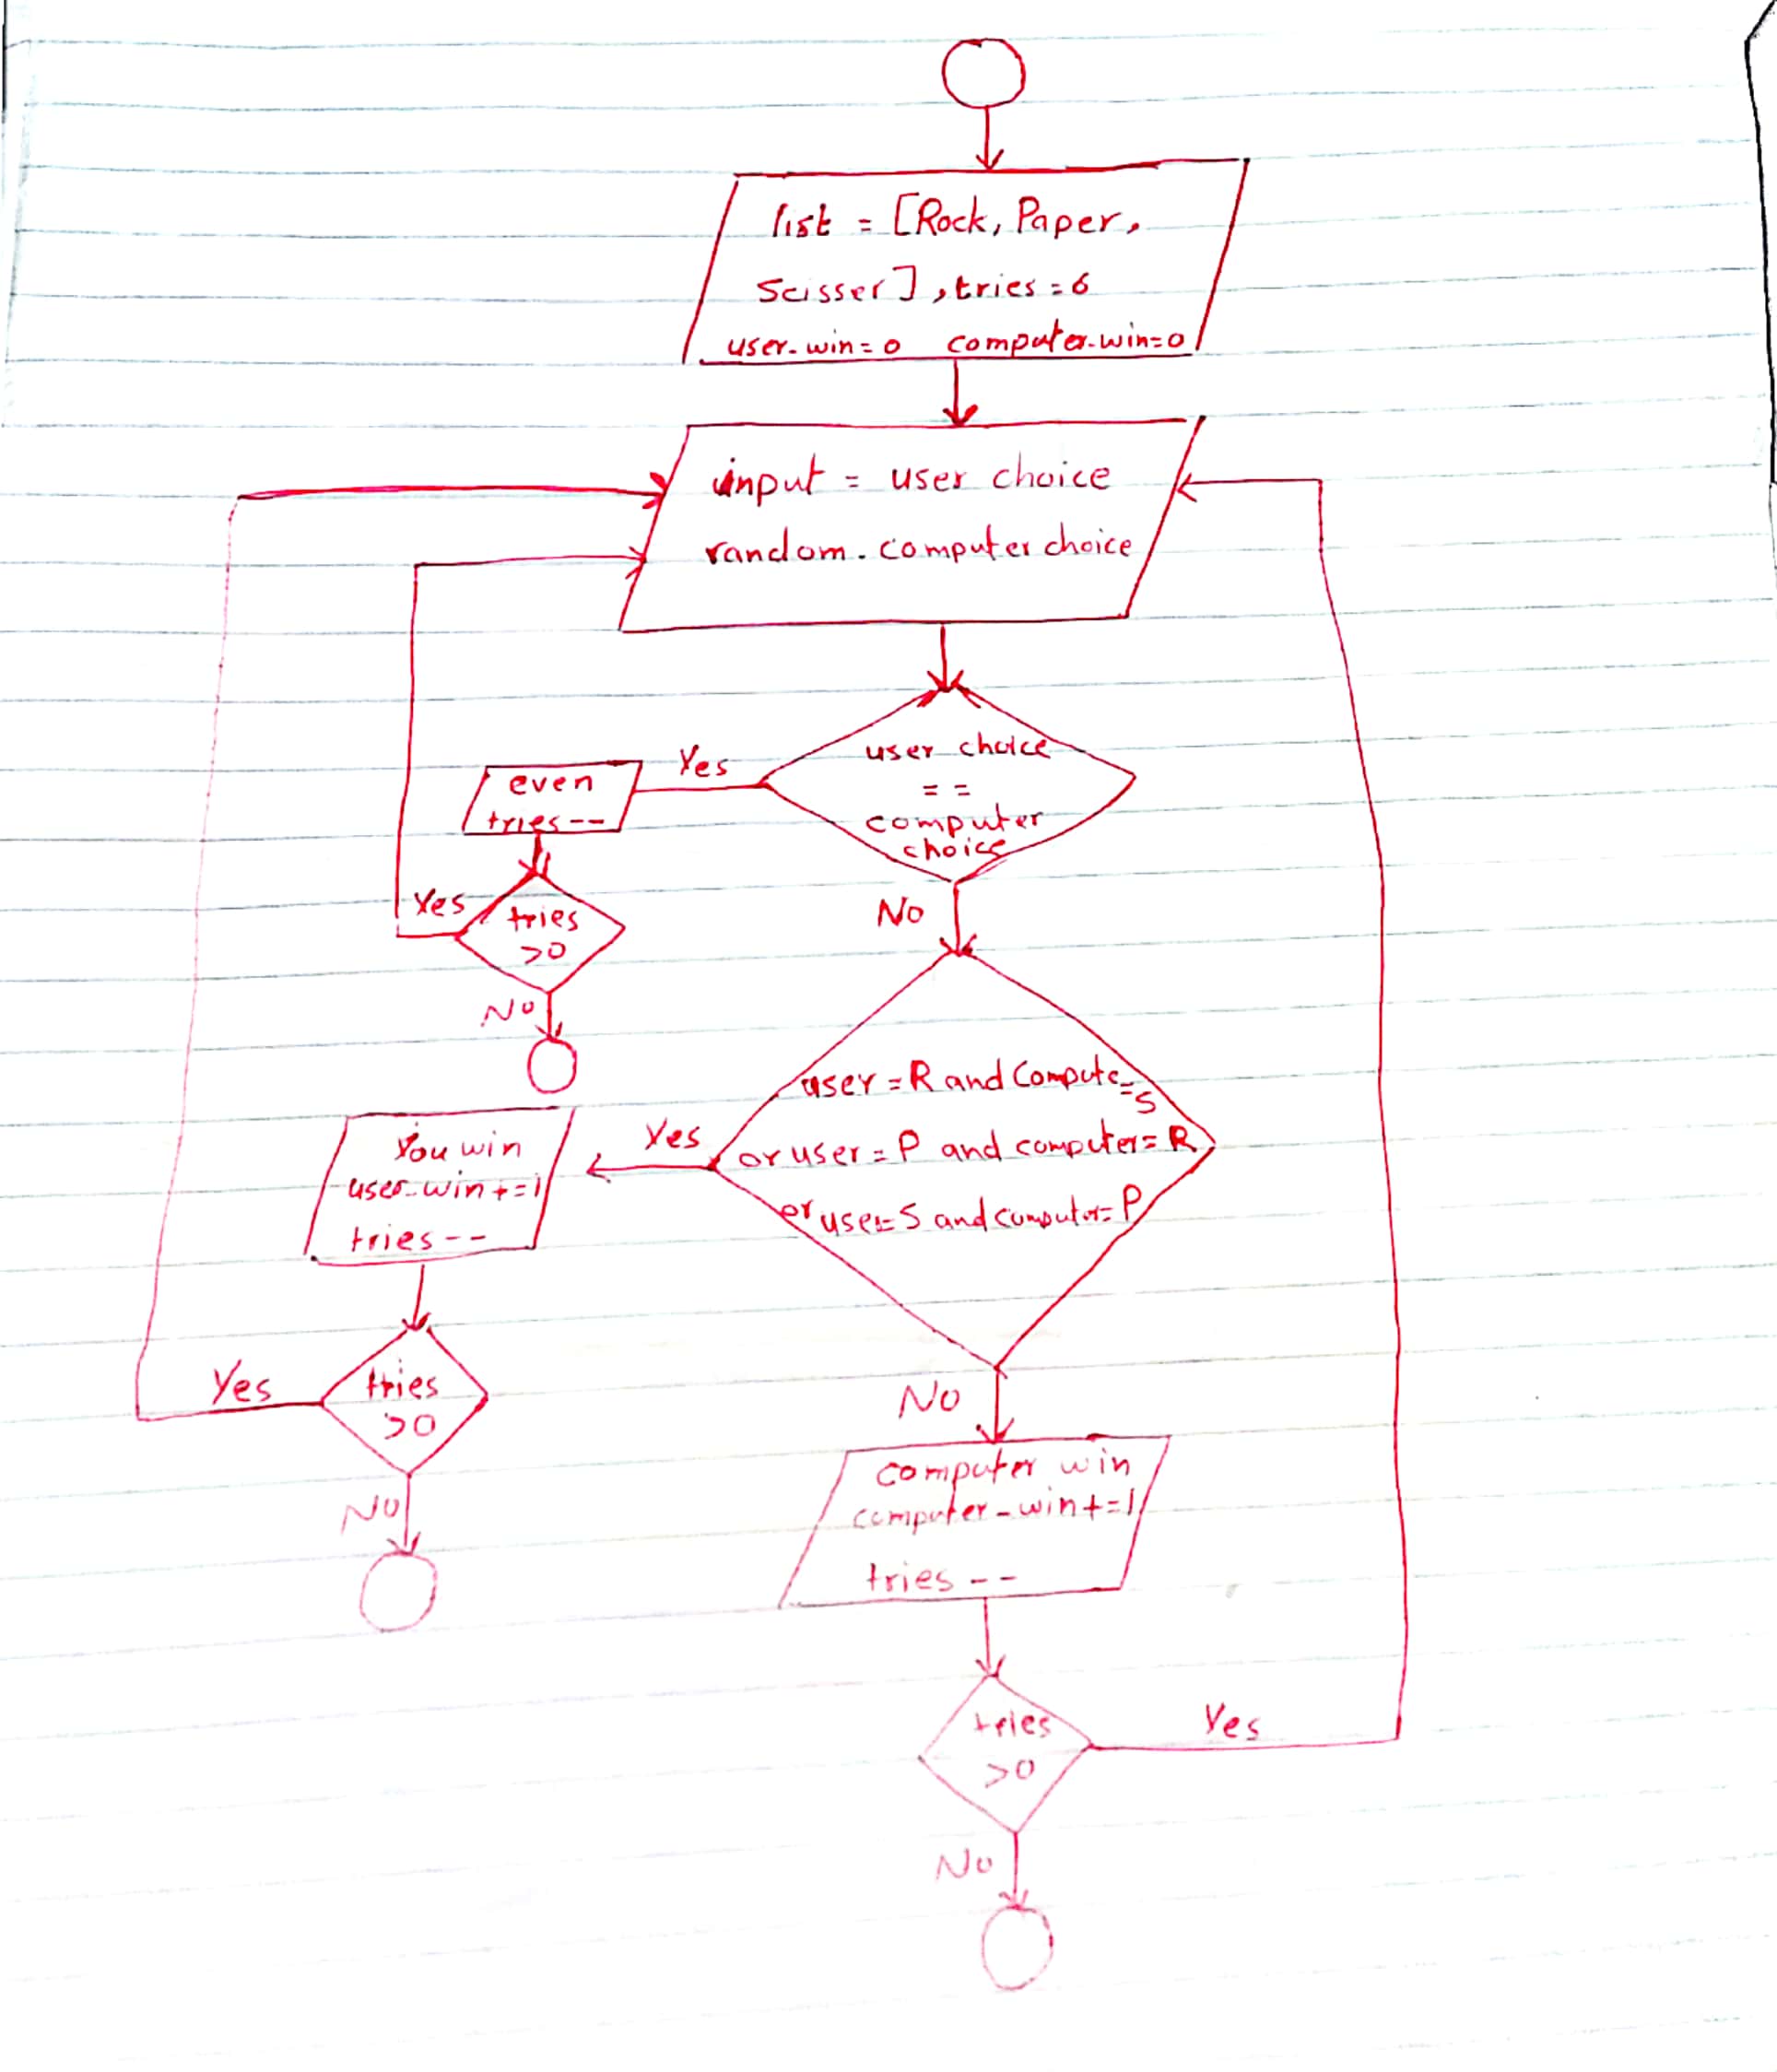 list = [Rock, Paper,
Scisser], tries=6
user-win=0 computer-win=0
input = user choice
random. computer choice
user choice
==
computer
choice
Yes
even
tries--
Yes
tries
>0
No
No
user=R and Compute=S
or user=P and computer=R
or user=S and computer=P
Yes
You win
user-win+=1
tries--
Yes
tries
>0
No
No
computer win
computer-win+=1
tries--
tries
>0
Yes
No